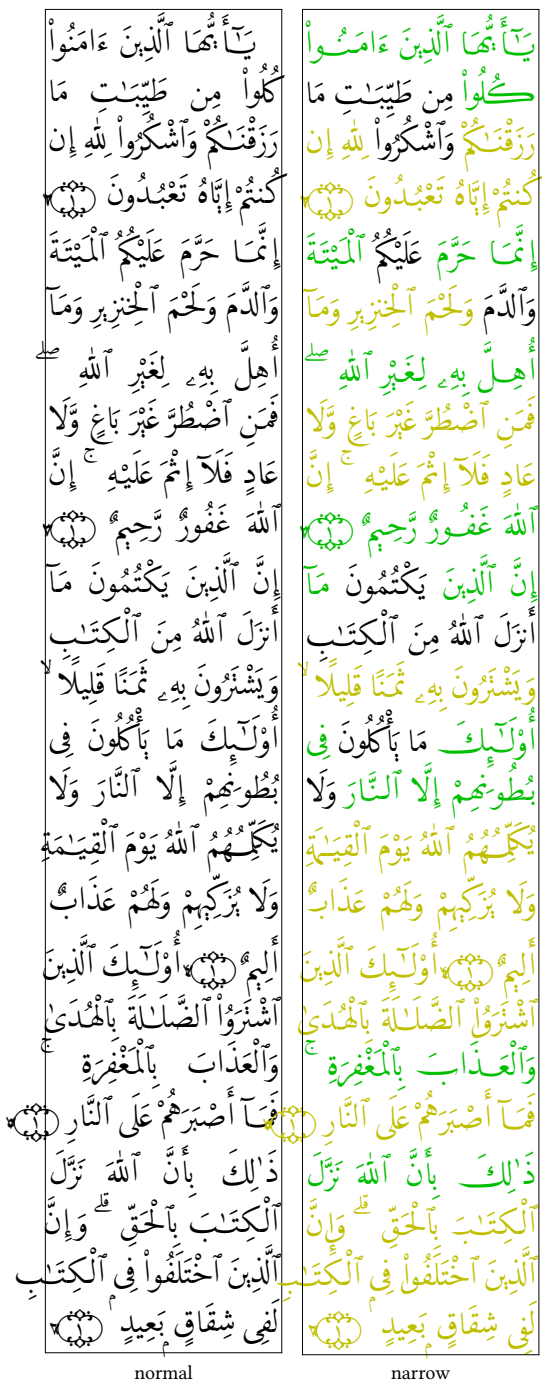 يَـٰٓأَيُّهَا ٱلَّذِينَ ءَامَنُوا۟
كُلُوا۟ مِن طَيِّبَـٰتِ مَا
رَزَقْنَـٰكُمْ وَٱشْكُرُوا۟ لِلَّهِ إِن
كُنتُمْ إِيَّاهُ تَعْبُدُونَ
إِنَّمَا حَرَّمَ عَلَيْكُمُ ٱلْمَيْتَةَ
وَٱلدَّمَ وَلَحْمَ ٱلْخِنزِيرِ وَمَآ
أُهِلَّ بِهِۦ لِغَيْرِ ٱللَّهِ ۖ
فَمَنِ ٱضْطُرَّ غَيْرَ بَاغٍ وَّلَا
عَادٍ فَلَآ إِثْمَ عَلَيْهِ ۚ إِنَّ
ٱللَّهَ غَفُورٌ رَّحِيمٌ
إِنَّ ٱلَّذِينَ يَكْتُمُونَ مَآ
أَنزَلَ ٱللَّهُ مِنَ ٱلْكِتَـٰبِ
وَيَشْتَرُونَ بِهِۦ ثَمَنًا قَلِيلًا ۙ
أُو۟لَـٰٓئِكَ مَا يَأْكُلُونَ فِى
بُطُونِهِمْ إِلَّا ٱلنَّارَ وَلَا
يُكَلِّمُهُمُ ٱللَّهُ يَوْمَ ٱلْقِيَـٰمَةِ
وَلَا يُزَكِّيهِمْ وَلَهُمْ عَذَابٌ
أَلِيمٌ أُو۟لَـٰٓئِكَ ٱلَّذِينَ
ٱشْتَرَوُا۟ ٱلضَّلَـٰلَةَ بِٱلْهُدَىٰ
وَٱلْعَذَابَ بِٱلْمَغْفِرَةِ ۚ
فَمَآ أَصْبَرَهُمْ عَلَى ٱلنَّارِ
ذَٰلِكَ بِأَنَّ ٱللَّهَ نَزَّلَ
ٱلْكِتَـٰبَ بِٱلْحَقِّ ۗ وَإِنَّ
ٱلَّذِينَ ٱخْتَلَفُوا۟ فِى ٱلْكِتَـٰبِ
لَفِى شِقَاقٍۭ بَعِيدٍ
normal
يَـٰٓأَيُّهَا ٱلَّذِينَ ءَامَنُوا۟
كُلُوا۟ مِن طَيِّبَـٰتِ مَا
رَزَقْنَـٰكُمْ وَٱشْكُرُوا۟ لِلَّهِ إِن
كُنتُمْ إِيَّاهُ تَعْبُدُونَ
إِنَّمَا حَرَّمَ عَلَيْكُمُ ٱلْمَيْتَةَ
وَٱلدَّمَ وَلَحْمَ ٱلْخِنزِيرِ وَمَآ
أُهِلَّ بِهِۦ لِغَيْرِ ٱللَّهِ ۖ
فَمَنِ ٱضْطُرَّ غَيْرَ بَاغٍ وَّلَا
عَادٍ فَلَآ إِثْمَ عَلَيْهِ ۚ إِنَّ
ٱللَّهَ غَفُورٌ رَّحِيمٌ
إِنَّ ٱلَّذِينَ يَكْتُمُونَ مَآ
أَنزَلَ ٱللَّهُ مِنَ ٱلْكِتَـٰبِ
وَيَشْتَرُونَ بِهِۦ ثَمَنًا قَلِيلًا ۙ
أُو۟لَـٰٓئِكَ مَا يَأْكُلُونَ فِى
بُطُونِهِمْ إِلَّا ٱلنَّارَ وَلَا
يُكَلِّمُهُمُ ٱللَّهُ يَوْمَ ٱلْقِيَـٰمَةِ
وَلَا يُزَكِّيهِمْ وَلَهُمْ عَذَابٌ
أَلِيمٌ أُو۟لَـٰٓئِكَ ٱلَّذِينَ
ٱشْتَرَوُا۟ ٱلضَّلَـٰلَةَ بِٱلْهُدَىٰ
وَٱلْعَذَابَ بِٱلْمَغْفِرَةِ ۚ
فَمَآ أَصْبَرَهُمْ عَلَى ٱلنَّارِ
ذَٰلِكَ بِأَنَّ ٱللَّهَ نَزَّلَ
ٱلْكِتَـٰبَ بِٱلْحَقِّ ۗ وَإِنَّ
ٱلَّذِينَ ٱخْتَلَفُوا۟ فِى ٱلْكِتَـٰبِ
لَفِى شِقَاقٍۭ بَعِيدٍ
narrow